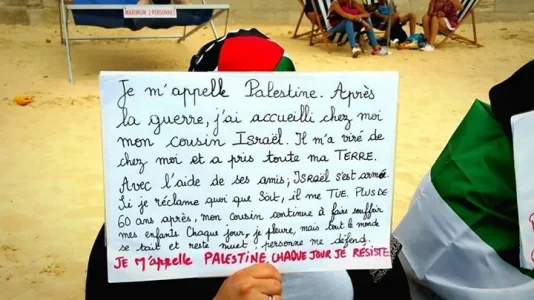 MAXIMUM 2 PERSONNES
Je m'appelle Palestine. Après
la guerre, j'ai accueilli chez moi
mon cousin Israël. Il m'a viré de
chez moi et a pris toute ma TERRE.
Avec l'aide de ses amis; Israël s'est armé.
Si je réclame quoi que Soit, il me TUE. PLUS DE
60 ans après, mon cousin continue à faire souffrir
mes enfants Chaque jour, je pleure, mais tout le monde
se tait et reste muet, personne me défend.
JE M'appelle PALESTINE, CHAQUE JOUR JE RESISTE